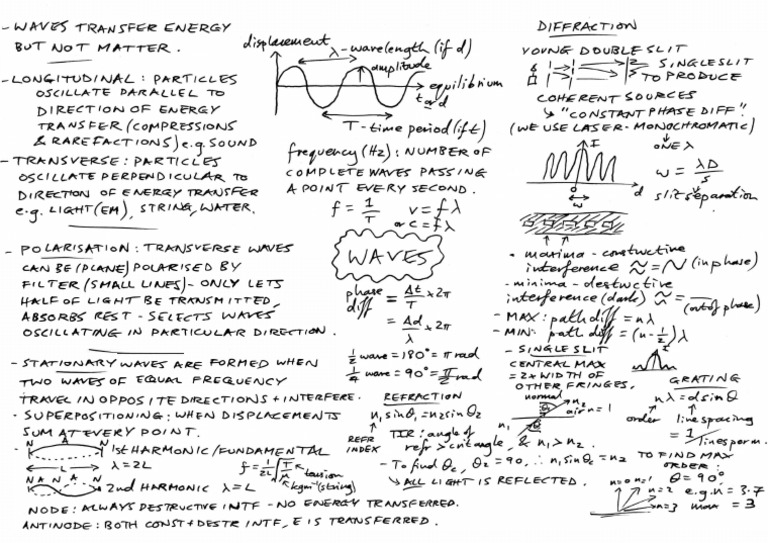 - WAVES TRANSFER ENERGY
BUT NOT MATTER.
- LONGITUDINAL: PARTICLES
OSCILLATE PARALLEL TO
DIRECTION OF ENERGY
TRANSFER (COMPRESSIONS
& RAREFACTIONS) e.g. SOUND
- TRANSVERSE: PARTICLES
OSCILLATE PERPENDICULAR TO
DIRECTION OF ENERGY TRANSFER
e.g. LIGHT (EM), STRING, WATER.
- POLARISATION: TRANSVERSE WAVES
CAN BE (PLANE) POLARISED BY
FILTER (SMALL LINES) - ONLY LETS
HALF OF LIGHT BE TRANSMITTED,
ABSORBS REST - SELECTS WAVES
OSCILLATING IN PARTICULAR DIRECTION.
- STATIONARY WAVES ARE FORMED WHEN
TWO WAVES OF EQUAL FREQUENCY
TRAVEL IN OPPOSITE DIRECTIONS + INTERFERE.
• SUPERPOSITIONING: WHEN DISPLACEMENTS
SUM AT EVERY POINT.
N A N
1st HARMONIC / FUNDAMENTAL
L λ = 2L
f = 1/2L √T/μ ← tension
kgm⁻¹ (string)
N A N A N
2nd HARMONIC λ = L
NODE: ALWAYS DESTRUCTIVE INTF - NO ENERGY TRANSFERRED.
ANTINODE: BOTH CONST + DESTR INTF, E IS TRANSFERRED.
displacement
λ - wavelength (if d)
amplitude
equilibrium
t or d
T - time period (if t)
frequency (Hz): NUMBER OF
COMPLETE WAVES PASSING
A POINT EVERY SECOND.
f = 1/T v = fλ
or c = fλ
WAVES
phase diff = Δt/T × 2π
= Δd/λ × 2π
1/2 wave = 180° = π rad
1/4 wave = 90° = π/2 rad
REFRACTION
n₁sinθ₁ = n₂sinθ₂
REFR INDEX
normal
n₂
air n = 1
n₁
TIR: angle of
refr > crit angle, & n₁ > n₂.
- To find θc, θ₂ = 90, ∴ n₁sinθc = n₂
↳ ALL LIGHT IS REFLECTED.
DIFFRACTION
YOUNG DOUBLE SLIT
SINGLE SLIT
TO PRODUCE
COHERENT SOURCES
↳ "CONSTANT PHASE DIFF."
(WE USE LASER - MONOCHROMATIC)
ONE λ
I
w = λD/s
0 d
w
slit separation
• maxima - constructive
interference = (in phase)
- minima - destructive
interference (dark) = (out of phase)
- MAX: path diff = nλ
- MIN: path diff = (n - 1/2)λ
- SINGLE SLIT
CENTRAL MAX
= 2x WIDTH OF
OTHER FRINGES.
GRATING
nλ = dsinθ
order line spacing
= 1/lines per m.
TO FIND MAX
ORDER:
θ = 90°
e.g. n = 3.7
max = 3
n=0 n=1 n=2
n=3